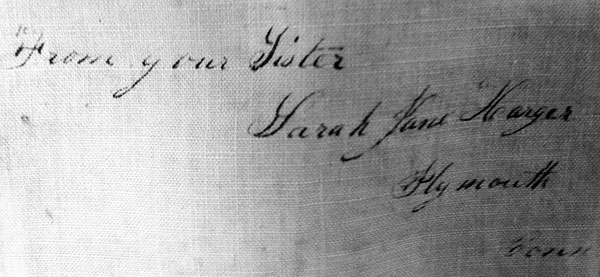 From your Sister
Sarah Jane Marger
Plymouth
Conn